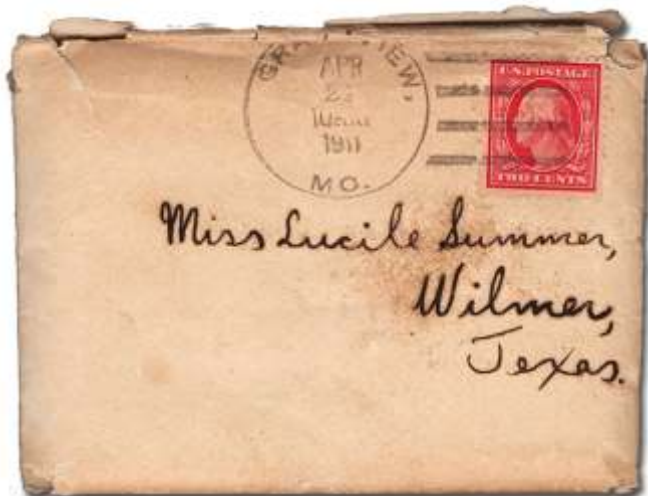 GRANDVIEW,
APR
1911
MO.
U.S. POSTAGE
TWO CENTS
Miss Lucile Summer,
Wilmer,
Texas.